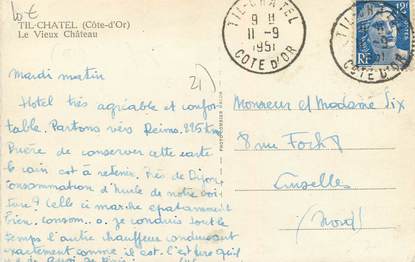 10€
TIL-CHATEL (Côte-d'Or)
Le Vieux Château
TIL-CHATEL
9 H
11-9
1951
COTE D'OR
12F
RF
21)
Mardi matin
Hotel très agréable et confor
table. Partons vers Reims. 225 km
Prière de conserver cette carte
le coin est à retenir. Près de Dijon.
Consommation d'huile de notre voi
ture? Celle ci marche épatamment
bien. consom.. 0. je conduis tout le
temps l'autre chauffeur conduisant
exactement comme il est. C'est dire qu'il
PHOTOMECHANIC
Monsieur et Madame Six
8 rue Foch
Linselles
(Nord)